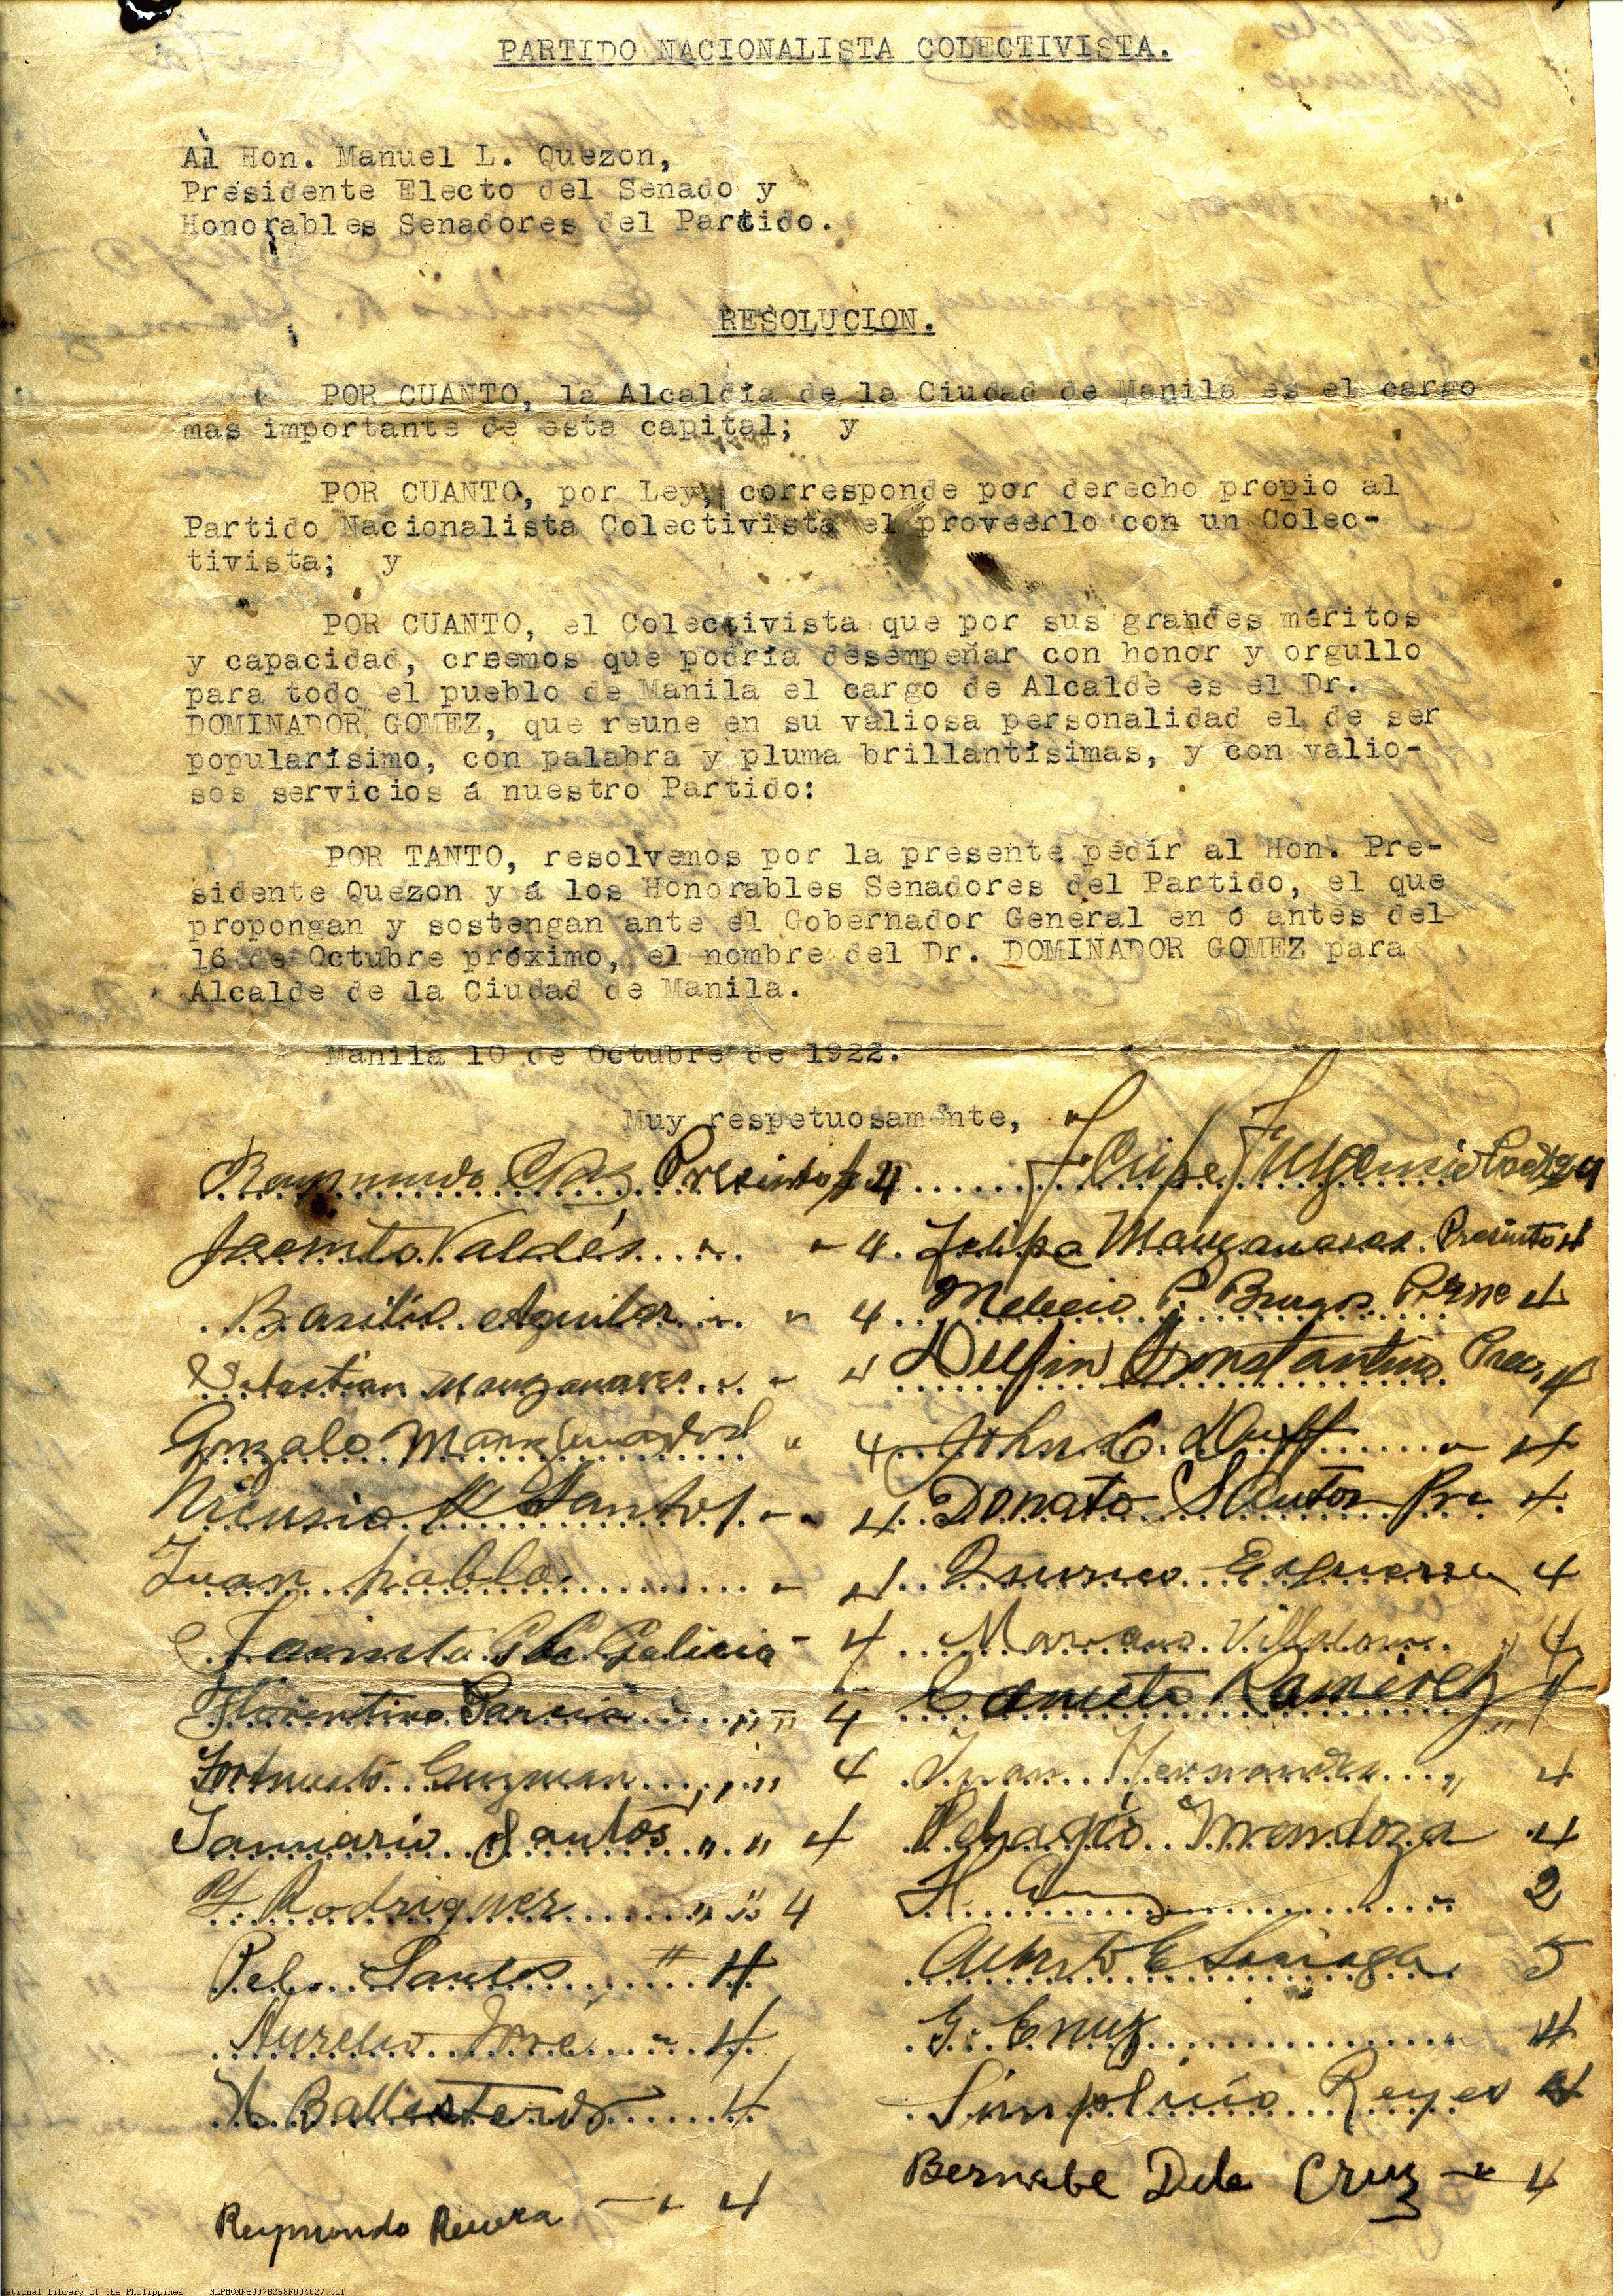 PARTIDO NACIONALISTA COLECTIVISTA.
Al Hon. Manuel L. Quezon,
Presidente Electo del Senado y
Honorables Senadores del Partido.
RESOLUCION.
POR CUANTO, la Alcaldía de la Ciudad de Manila es el cargo
mas importante de esta capital; y
POR CUANTO, por Ley, corresponde por derecho propio al
Partido Nacionalista Colectivista el proveerlo con un Colec-
tivista; y
POR CUANTO, el Colectivista que por sus grandes méritos
y capacidad, creemos que podría desempeñar con honor y orgullo
para todo el pueblo de Manila el cargo de Alcalde es el Dr.
DOMINADOR GOMEZ, que reune en su valiosa personalidad el de ser
popularísimo, con palabra y pluma brillantísimas, y con valio-
sos servicios á nuestro Partido:
POR TANTO, resolvemos por la presente pedir al Hon. Pre-
sidente Quezon y á los Honorables Senadores del Partido, el que
propongan y sostengan ante el Gobernador General en ó antes del
16 de Octubre próximo, el nombre del Dr. DOMINADOR GOMEZ para
Alcalde de la Ciudad de Manila.
Manila 10 de Octubre de 1922.
Muy respetuosamente,
Raymundo Presinto 4 Felipe Fulgencio
Jacinto Valdés " " 4 Felipe Manzanares Presinto 4
Basilio Aguilar " " 4 Melecio P. Burgos 4
Sebastian Manzanares " " 4 Delfin Constantino Prec. 4
Gonzalo " 4 John C. Duff " 4
Santos " " 4 Donato Santos Pre 4
Juan Pablo " 4 Esguerra 4
Jacinto Galicia " 4 Mariano Villalon " 4
Florentino Garcia " " 4 Canuto Ramirez " 4
Fortunato Guzman " " 4 Juan Hernandez " 4
Januario Santos " " 4 Pelagio Mendoza 4
Y. Rodriguez " " 4 H. " 2
Santos " 4 Alberto E. 5
Aurelio Jose " 4 G. Cruz " 4
Ballesteros 4 Simplicio Reyes 4
Bernabe Dela Cruz " 4
Raymundo Rivera " 4
National Library of the Philippines NLPMQMNS007B258F004027.tif